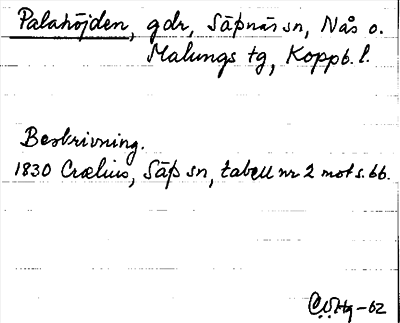 Palahöjden, gdr, Säfsnäs sn, Nås o.
Malungs tg, Koppb. l.
Beskrivning.
1830 Crælius, Säfs sn, tabell nr 2 mot s. 66.
-62